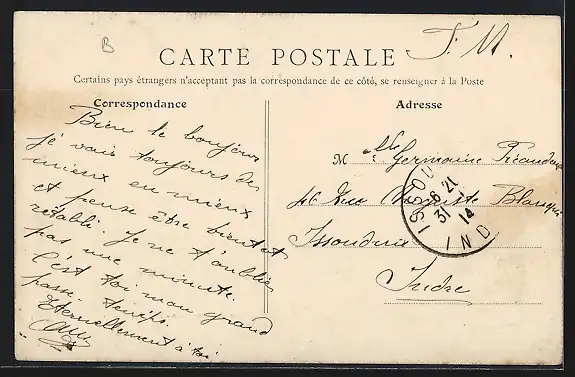 B
F. M.
CARTE POSTALE
Certains pays étrangers n'acceptant pas la correspondance de ce côté, se renseigner à la Poste
Correspondance
Bien le bonjour
je vais toujours de
mieux en mieux
et pense être bientot
rétabli. Je ne t'oublie
pas une minute.
C'est toi mon grand
passe-temps.
Eternellement à toi
Adresse
Melle Germaine
46 Rue Auguste Blanqui
Issoudun
Indre
ISSOUDUN
31
14
IND